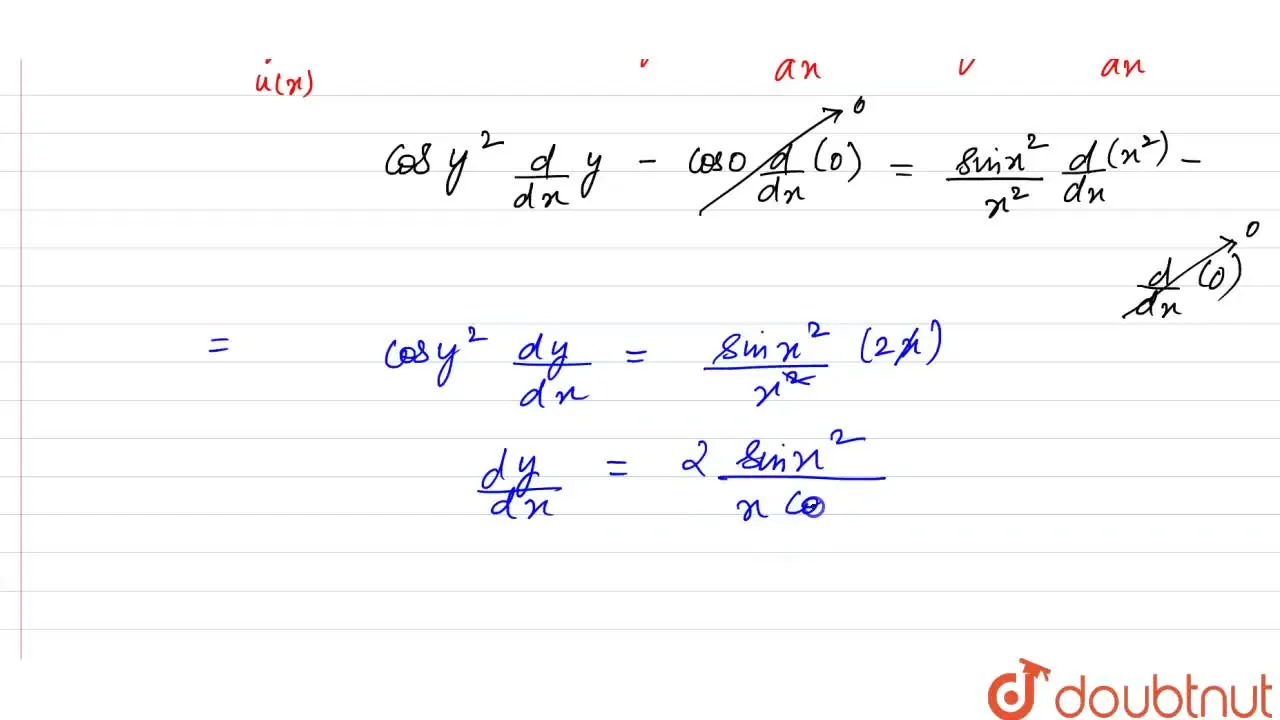 u(x)
dx
dx
cos y² d/dx y - cos 0 d/dx (0) = sin x²/x² d/dx (x²) -
0
d/dx (0)
0
= cos y² dy/dx = sin x²/x² (2x)
dy/dx = 2 sin x²/x co
doubtnut